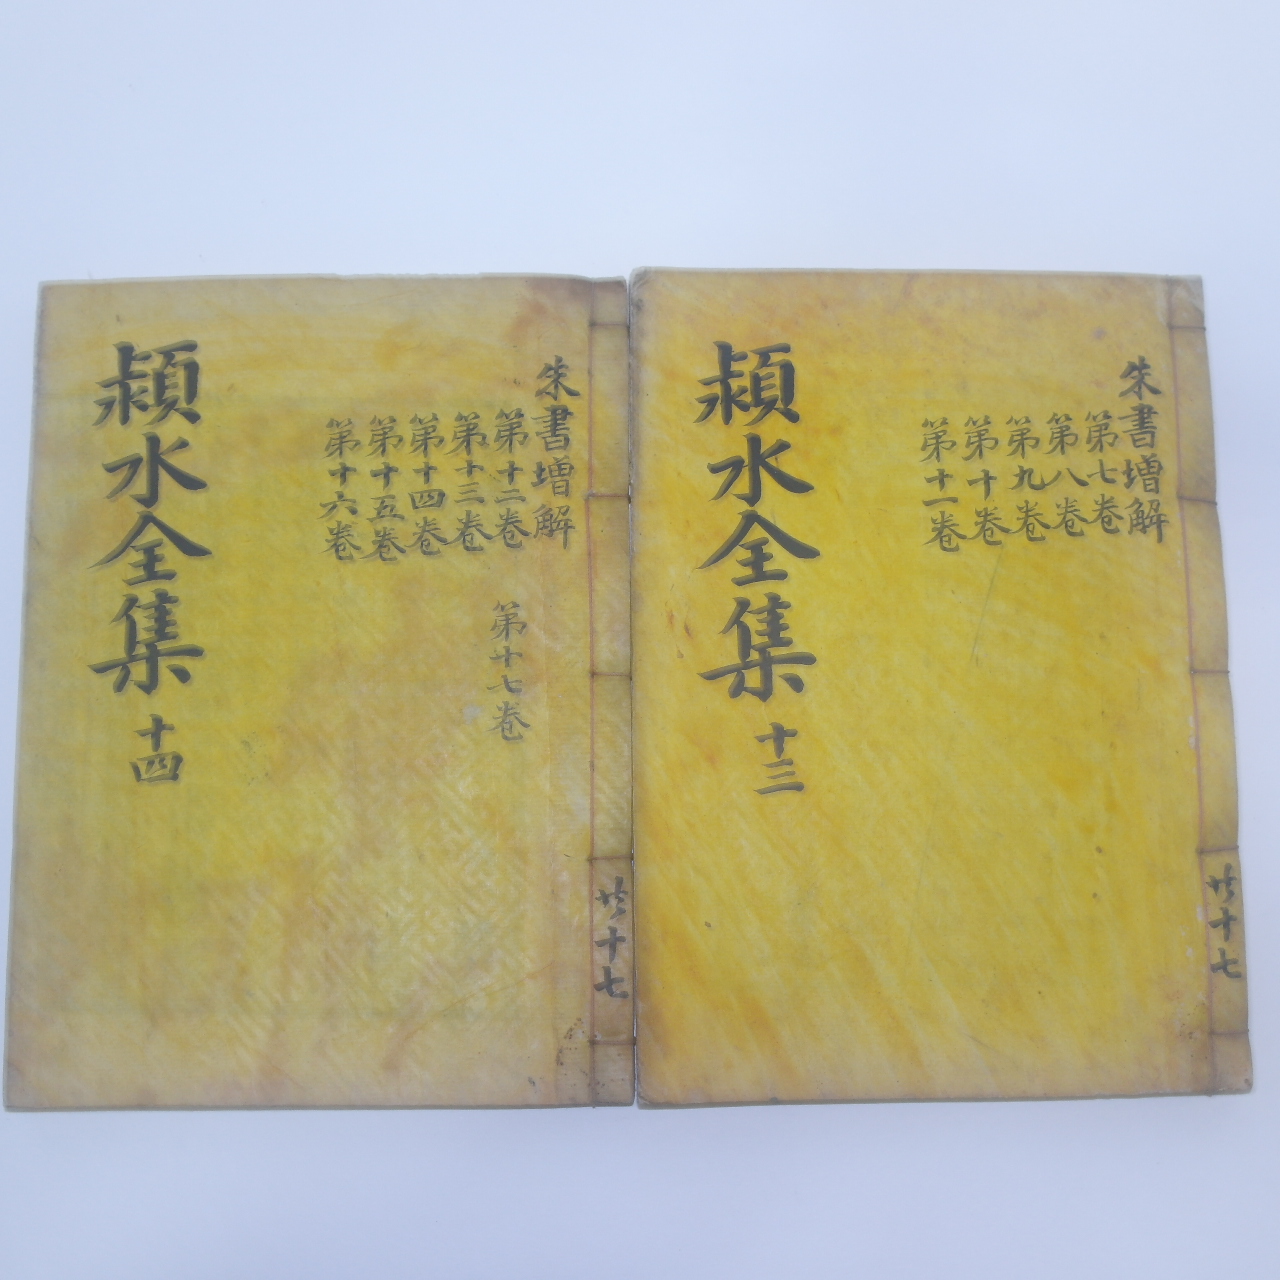 共十七
朱書增解
第七卷
第八卷
第九卷
第十卷
第十一卷
潁水全集 十三
共十七
朱書增解
第十二卷 第十七卷
第十三卷
第十四卷
第十五卷
第十六卷
潁水全集 十四